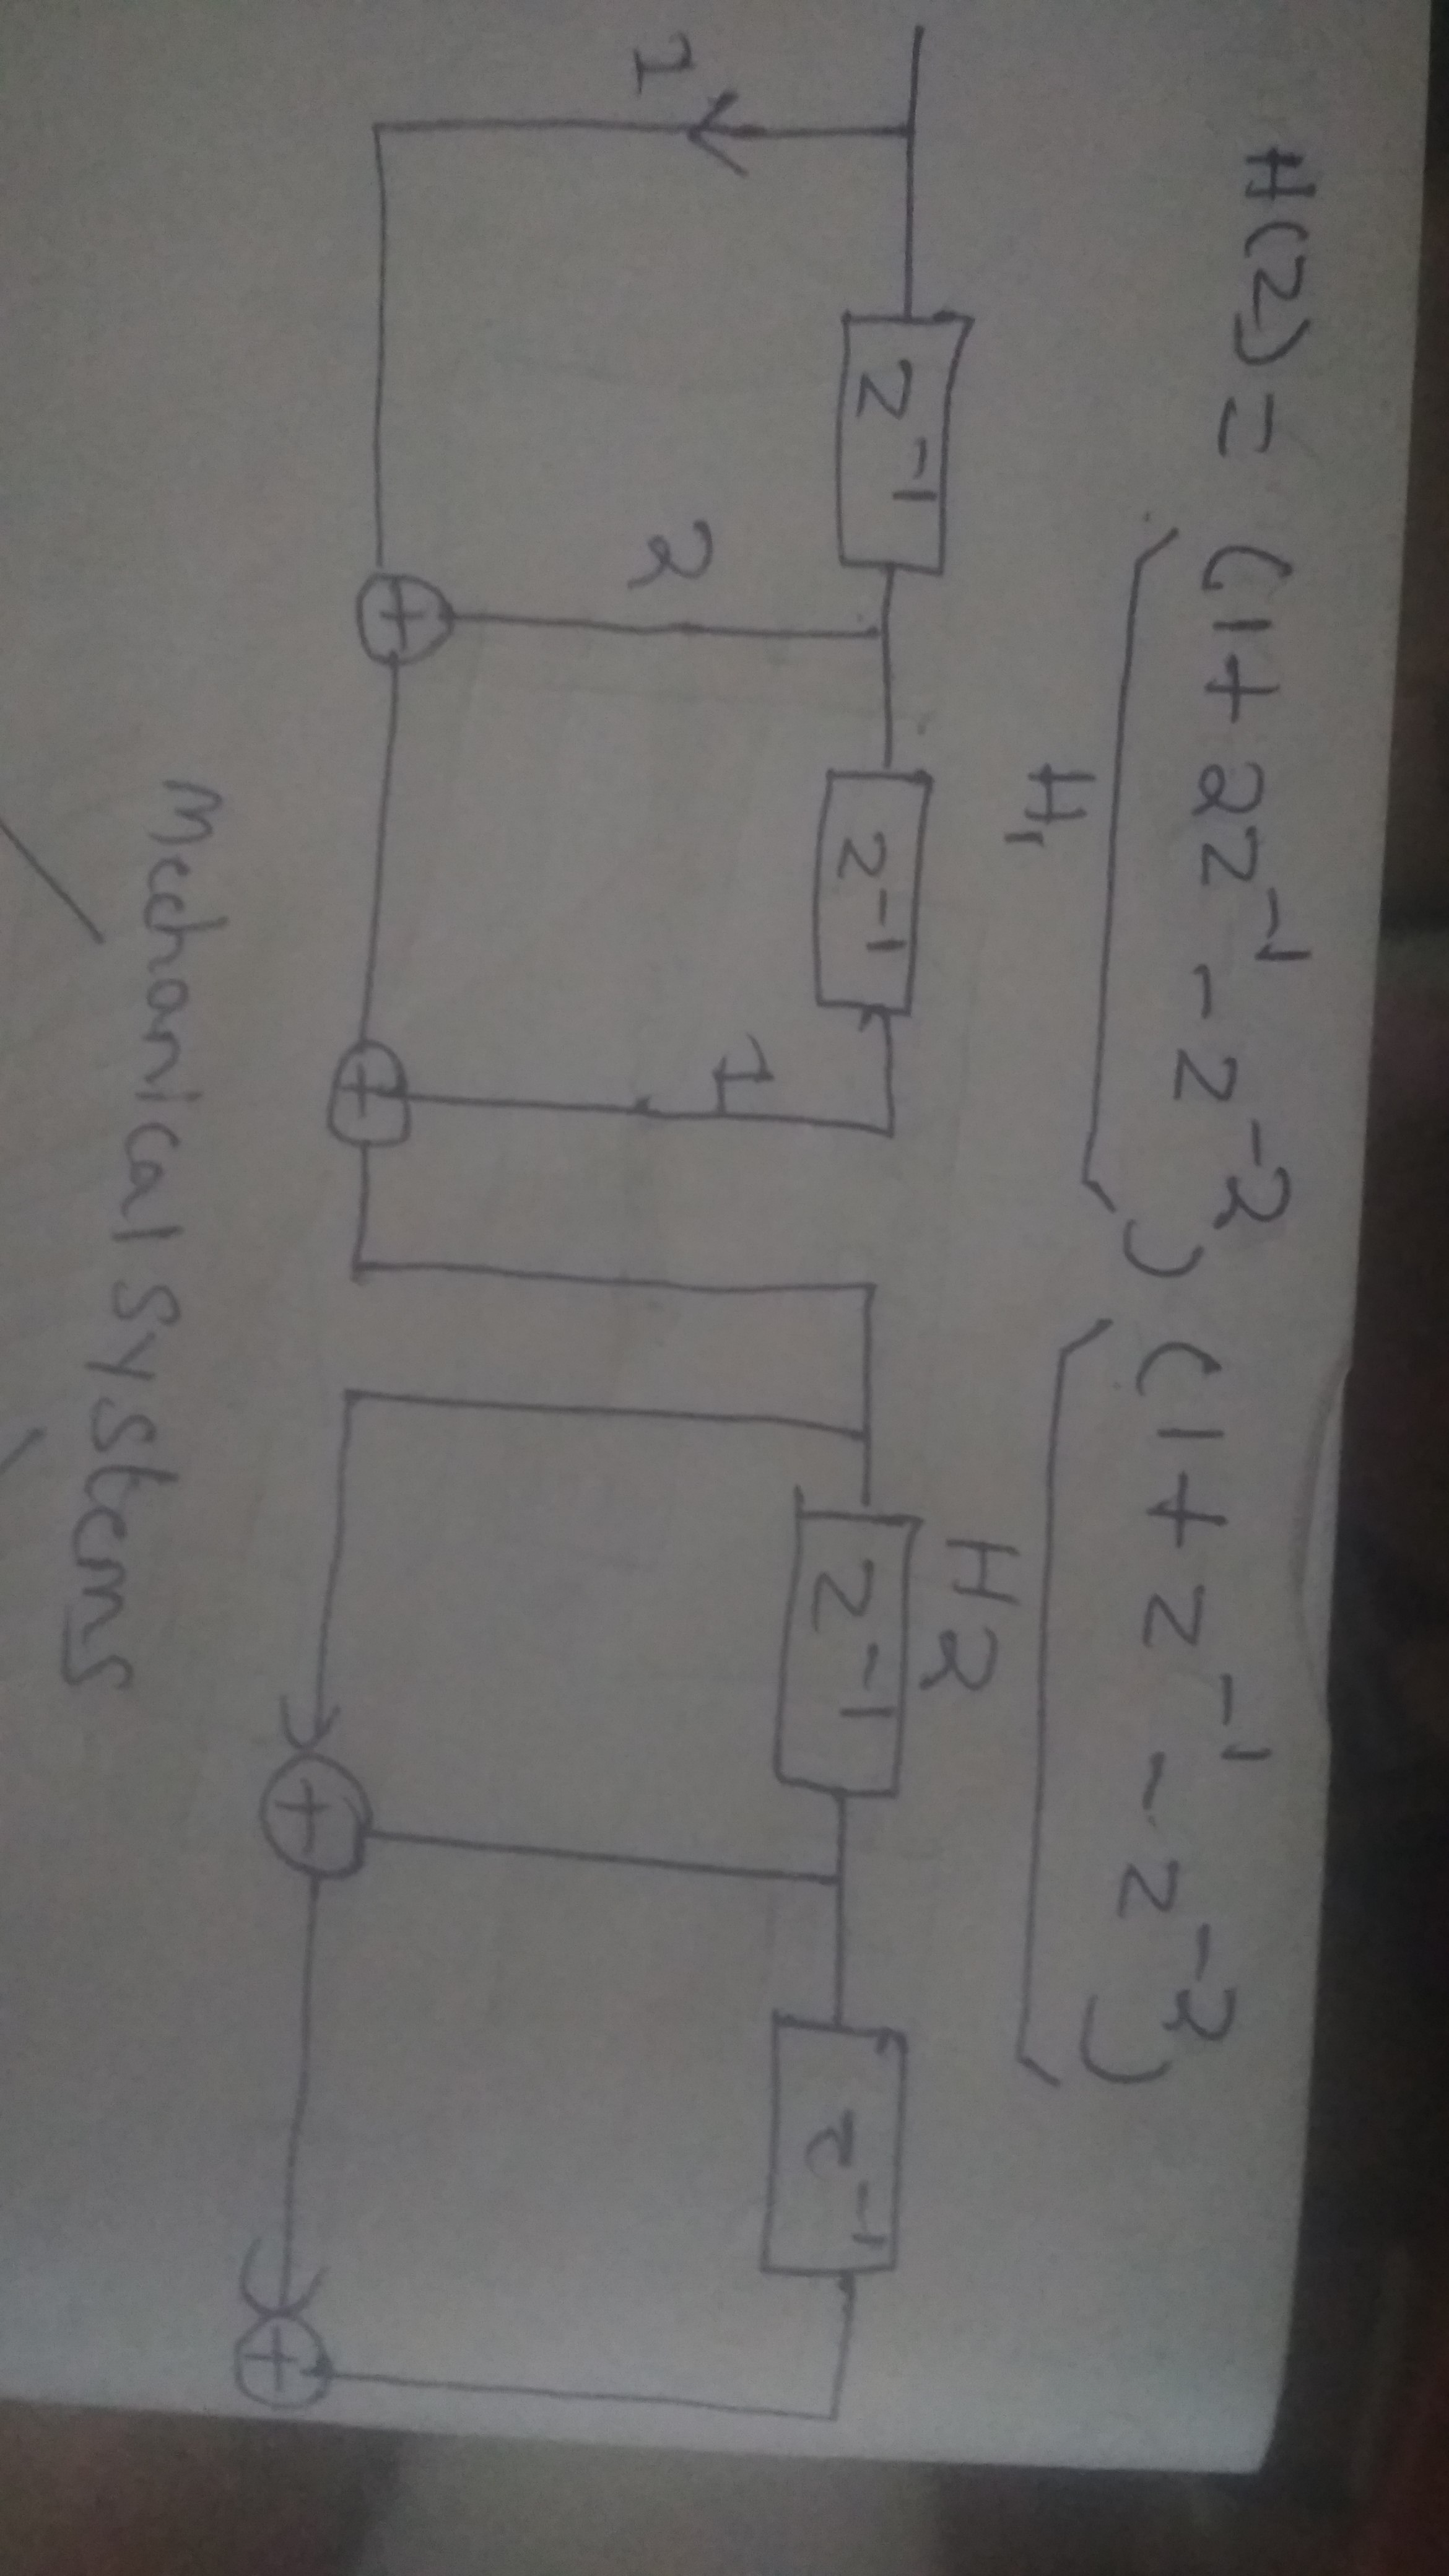 H(z) = (1 + 2z⁻¹ - z⁻²) (1 + z⁻¹ - z⁻²)
H₁ H2
z⁻¹ z⁻¹ z⁻¹ z⁻¹
1 2 1
+ + + +
Mechanical Systems